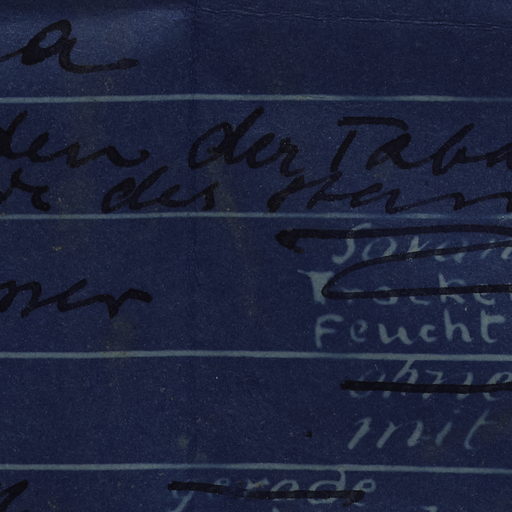 a
den der Taba
des Stam
Savan
Trocke
Feucht
ohne
mit
gerade